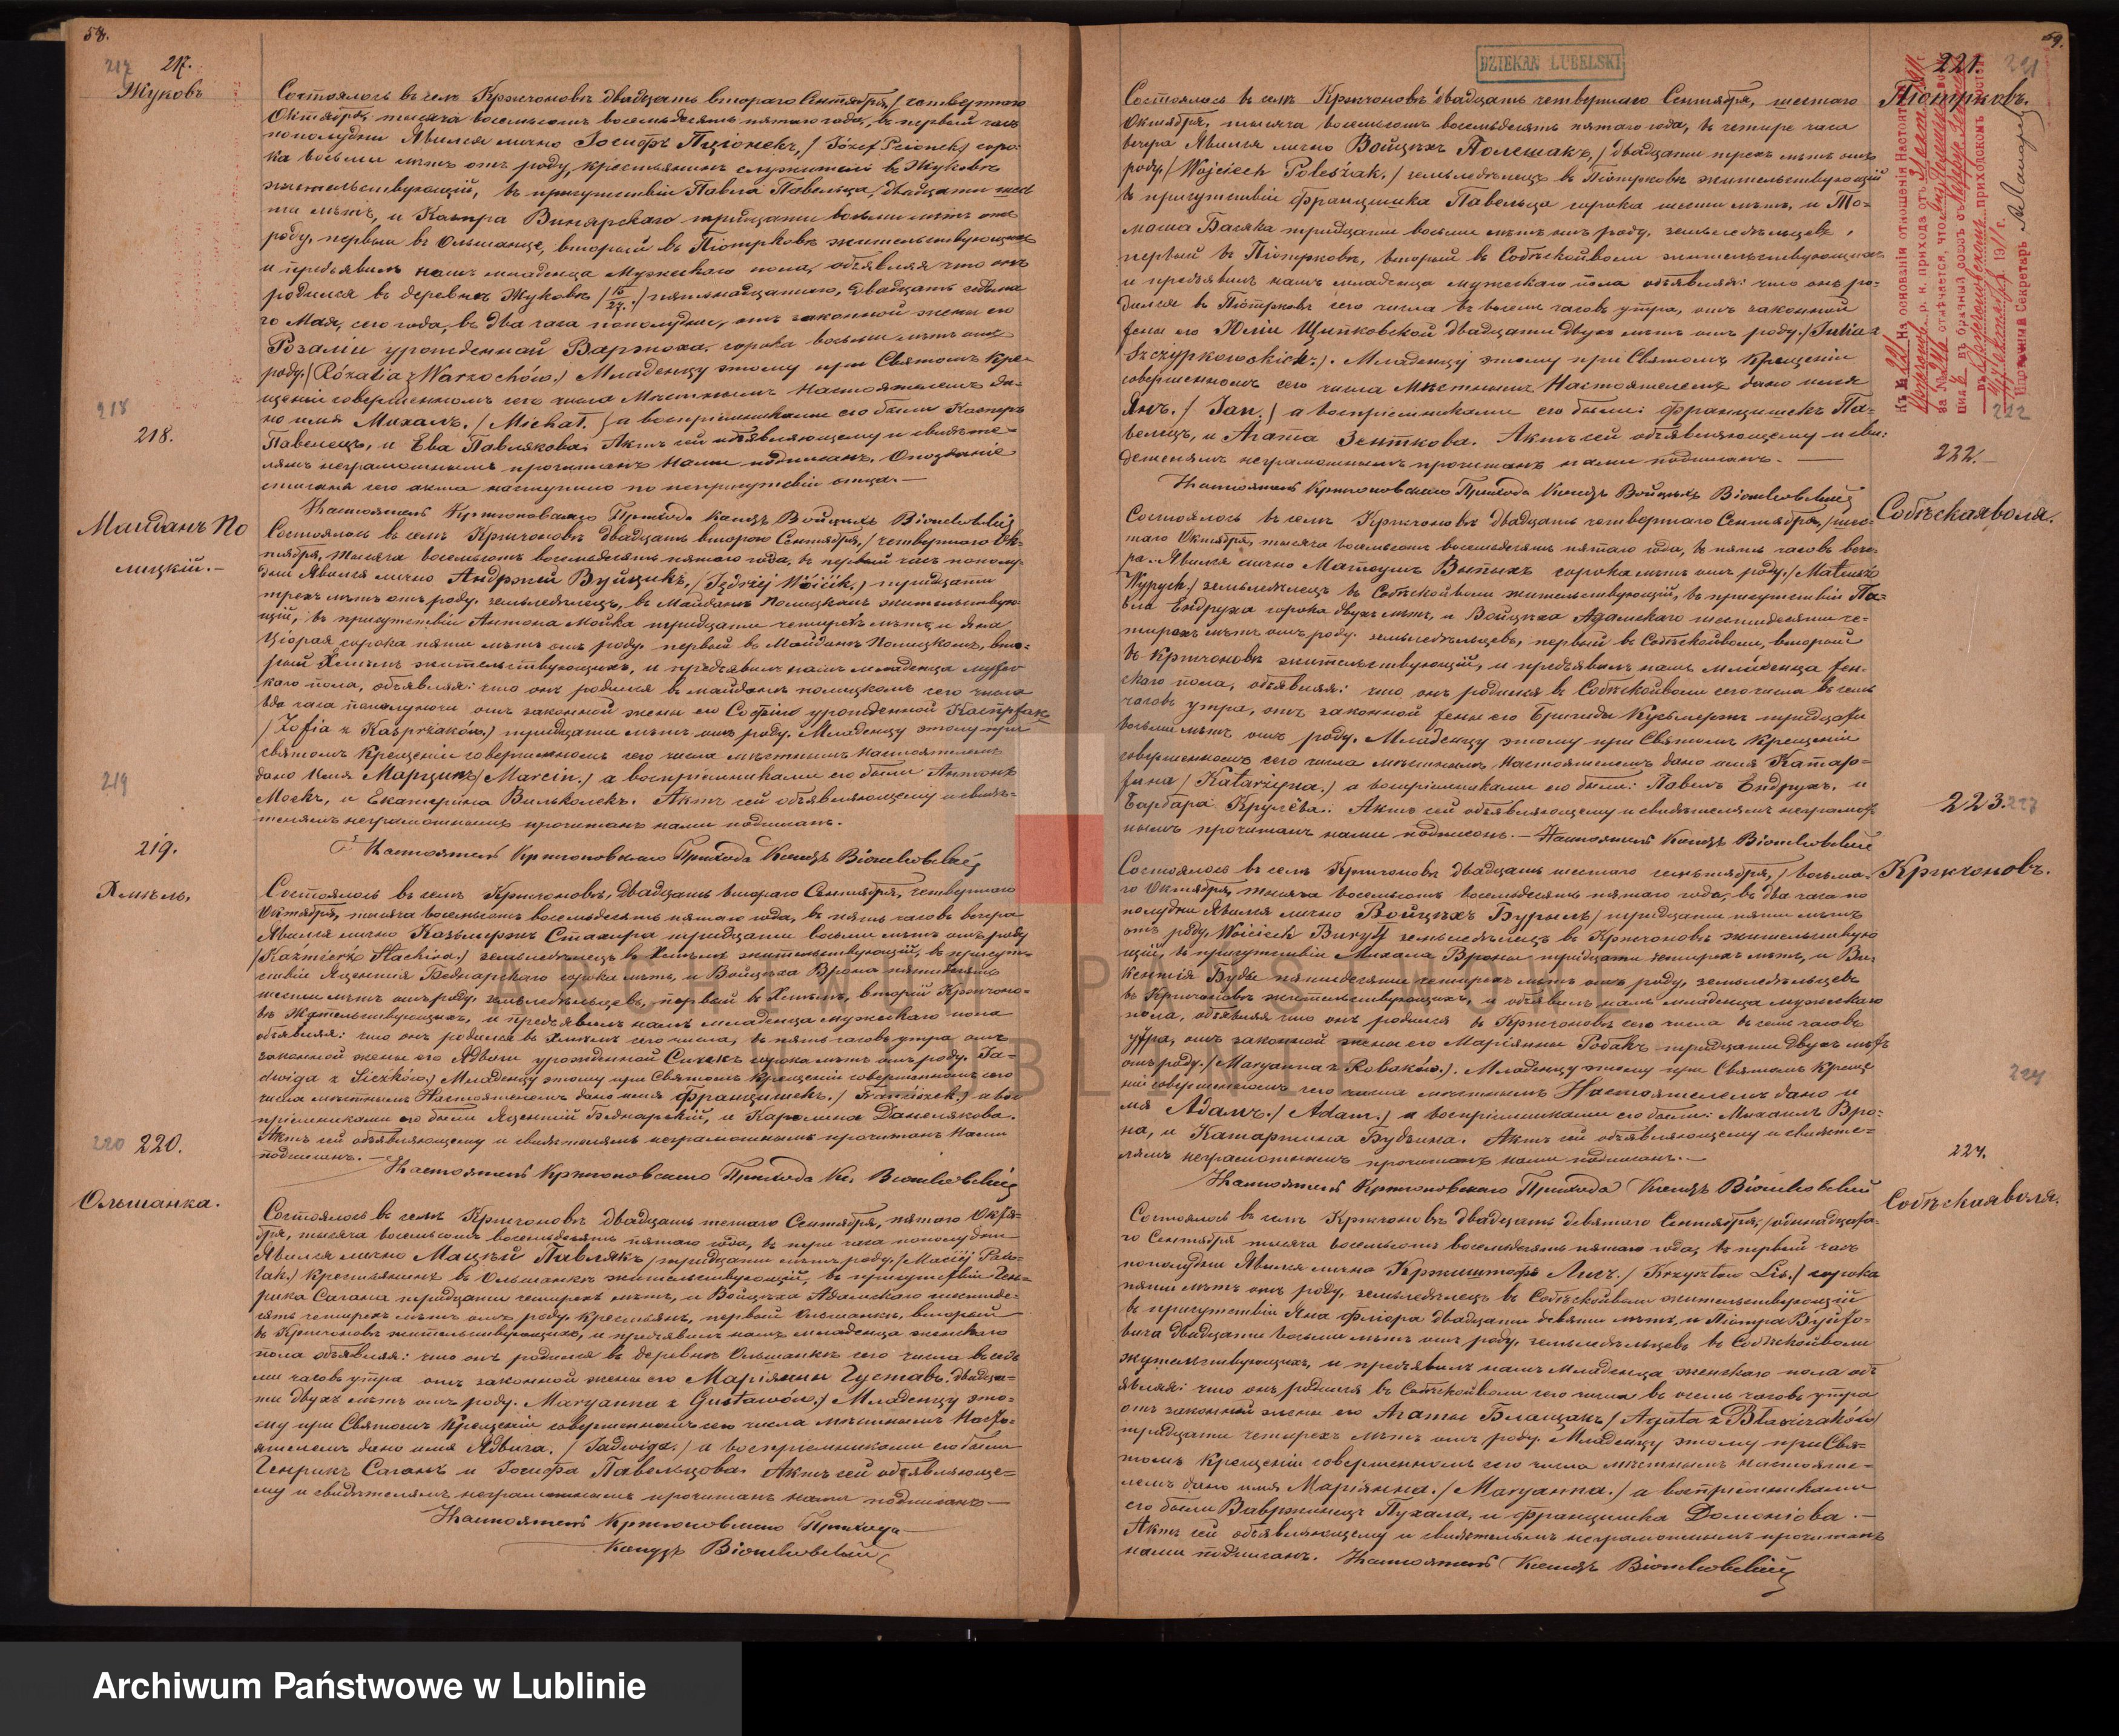 58.
217 217.
Жуковъ
Состоялось въ селѣ Кржчоновѣ двадцать втораго Сентября, / четвертаго
Октября, тысяча восемьсотъ восемьдесятъ пятаго года, въ первый часъ
пополудни Явился лично Іосифъ Пціонекъ, / Józef Pcionek / соро-
ка восьми лѣтъ отъ роду, крестьянинъ служитель въ Жуковѣ
жительствующій, въ присутствіи Павла Павельца, двадцати шес
ти лѣтъ, и Каспра Винярскаго тридцати восьми лѣтъ отъ
роду, первый въ Ольшанцѣ, вторый въ Піотрковѣ жительствующихъ
и предъявилъ намъ младенца мужескаго пола, объявляя что онъ
родился въ деревнѣ Жуковѣ / 15/27 / пятнадцатаго, двадцать седьма
го Мая, сего года, въ два часа пополудни, отъ законной жены его
Розаліи урожденной Варжоха, сорока восьми лѣтъ отъ
роду. / Rózalia z Warzochów. / Младенцу этому при Святомъ Кре-
щеніи совершенномъ сего числа Мѣстнымъ Настоятелемъ да-
но имя Михалъ. / Michał. / а воспріемниками его были Касперъ
Павелецъ, и Ева Павлякова. Актъ сей объявляющему и свидѣте-
лямъ неграмотнымъ прочитанъ Нами подписанъ. Опозданіе
списанія сего акта наступило по неприсутствіи отца. —
Настоятель Кржчоновскаго Прихода Ксендзъ Войцѣхъ
218
218.
Майданъ По
лицкій. —
Состоялось въ селѣ Кржчоновѣ двадцать втораго Сентября, / четвертаго Ок-
тября, тысяча восемьсотъ восемьдесятъ пятаго года, въ первый часъ пополу-
дни Явился лично Андржей Вуйцикъ, / Jędrzej Wóicik. / тридцати
трехъ лѣтъ отъ роду, земледѣлецъ, въ Майданѣ Полицкомъ жительствую-
щій, въ присутствіи Антона Мойка тридцати четырехъ лѣтъ, и Яна
Ціорая сорока пяти лѣтъ отъ роду, первый въ Майданѣ Полицкомъ, вто-
рый Хмѣлѣ жительствующихъ, и предъявилъ намъ младенца мужес
каго пола, объявляя: что онъ родился въ майданѣ полицкомъ сего числа
въ два часа пополуночи отъ законной жены его Софіи урожденной Каспржак
/ Zofia z Kasprzaków. / тридцати лѣтъ отъ роду. Младенцу этому при
святомъ Крещеніи совершенномъ сего числа мѣстнымъ настоятелемъ
дано имя Марцинъ / Marcin. / а воспріемниками его были Антонъ
Моекъ, и Екатерина Вильколекъ. Актъ сей объявляющему и свидѣ-
телямъ неграмотнымъ прочитанъ нами подписанъ.
Настоятель Кржчоновскаго Прихода Ксендзъ
219
219.
Хмѣль.
Состоялось въ селѣ Кржчоновѣ, двадцать втораго Сентября, четвертаго
Октября, тысяча восемьсотъ восемьдесятъ пятаго года, въ пять часовъ вечера
Явился лично Казьмержъ Стахира тридцати восьми лѣтъ отъ роду
/ Kaźmierz Stachira. / земледѣлецъ въ Хмѣлѣ жительствующій, въ присут-
ствіи Яцентія Беднарскаго сорока лѣтъ, и Войцѣха Врона пятидесяти
шести лѣтъ отъ роду, земледѣльцевъ, первый въ Хмѣлѣ, вторый Кржчоно-
вѣ Жительствующихъ, и предъявилъ намъ младенца мужескаго пола
объявляя: что онъ родился въ Хмѣлѣ сего числа, въ пять часовъ утра отъ
законной жены его Ядвиги урожденной Сичекъ сорока лѣтъ отъ роду. Ja-
dwiga z Siczków. / Младенцу этому при Святомъ Крещеніи совершенномъ сего
числа мѣстнымъ Настоятелемъ дано имя Францишекъ. / Franciszek. / а вос
пріемниками его были Яцентій Беднарскій, и Каролина Данелякова.
Актъ сей объявляющему и свидѣтелямъ неграмотнымъ прочитанъ Нами
подписанъ. —
Настоятель Кржчоновскаго Прихода Кс.
220 220.
Ольшанка.
Состоялось въ селѣ Кржчоновѣ двадцать третьаго Сентября, пятаго Октя-
бря, тысяча восемьсотъ восемьдесятъ пятаго года, въ три часа пополудни
Явился лично Мацѣй Павлякъ, / тридцати лѣтъ роду. / Maciej Paw-
lak. / Крестьянинъ въ Ольшанкѣ жительствующій, въ присутствіи Ген-
рика Сагана тридцати четырехъ лѣтъ, и Войцѣха Адамскаго шестиде-
сяти четырехъ лѣтъ отъ роду, крестьянъ, первый Ольшанкѣ, вторый
въ Кржчоновѣ жительствующихъ, и предъявилъ намъ младенца женскаго
пола объявляя: что онъ родился въ деревнѣ Ольшанкѣ сего числа въ седь
ми часовъ утра отъ законной жены его Маріянны Густавъ, двадца-
ти двухъ лѣтъ отъ роду. Maryanna z Gustawów. / Младенцу это-
му при Святомъ Крещеніи совершенномъ сего числа мѣстнымъ Насто-
ятелемъ дано имя Ядвига. / Jadwiga. / а воспріемниками его были
Генрикъ Саганъ и Іосифа Павельцова. Актъ сей объявляюще-
му и свидѣтелямъ неграмотнымъ прочитанъ нами подписанъ —
Настоятель Кржчоновскаго Прихода
Ксендзъ
59.
DZIEKAN LUBELSKI
221. 221
Піотрковъ.
Состоялось въ селѣ Кржчоновѣ двадцать четвертаго Сентября, шестаго
Октября, тысяча восемьсотъ восемьдесятъ пятаго года, въ четыре часа
вечера Явился лично Войцѣхъ Полешакъ, / двадцати трехъ лѣтъ отъ
роду. / Wojciech Poleszak. / земледѣлецъ въ Піотрковѣ жительствующій
въ присутствіи Францишка Павельца сорока шести лѣтъ, и То-
маша Басяка тридцати восьми лѣтъ отъ роду, земледѣльцевъ,
первый въ Піотрковѣ, вторый въ Собѣскойволи жительствующихъ
и предъявилъ намъ младенца мужескаго пола объявляя: что онъ ро-
дился въ Піотрковѣ сего числа въ восемь часовъ утра, отъ законной
жены его Юліи Щипковской двадцати двухъ лѣтъ отъ роду. / Julia z
Szczypkowskich. / Младенцу этому при Святомъ Крещеніи
совершенномъ сего числа Мѣстнымъ Настоятелемъ дано имя
Янъ. / Jan. / а воспріемниками его были: Францишекъ Па-
велецъ, и Агата Зенткова. Актъ сей объявляющему и сви:
детелямъ неграмотнымъ прочитанъ нами подписанъ. —
Настоятель Кржчоновскаго Прихода Ксендзъ Войцѣхъ
Къ № 221 На основаніи отношенія Настоят
р. к. прихода отъ
за № отмѣчается, что
въ брачный союзъ съ
въ приходскомъ костелѣ
1911 г.
Секретарь
222
222. —
Собѣскаяволя.
Состоялось въ селѣ Кржчоновѣ двадцать четвертаго Сентября, / шес-
таго Октября, тысяча восемьсотъ восемьдесятъ пятаго года, въ пять часовъ вече-
ра. Явился лично Матеушъ Выпыхъ сорока лѣтъ отъ роду. / Mateusz
Wypych. / земледѣлецъ въ Собѣскойволи жительствующій, въ присутствіи Па-
вла Ендруха сорока двухъ лѣтъ, и Войцѣха Адамскаго шестидесяти че-
тырехъ лѣтъ отъ роду, земледѣльцевъ, первый въ Собѣскойволи, вторый
въ Кржчоновѣ жительствующій, и предъявилъ намъ младенца жен-
скаго пола, объявляя: что онъ родился въ Собѣскойволи сего числа въ семь
часовъ утра, отъ законной жены его Бригиды Кузьмержъ тридцати
восьми лѣтъ отъ роду. Младенцу этому при Святомъ Крещеніи
совершенномъ сего числа мѣстнымъ Настоятелемъ дано имя Катар-
жина / Katarzyna. / а воспріемниками его были: Павелъ Ендрухъ, и
Барбара Крулёва. Актъ сей объявляющему и свидѣтелямъ неграмот
нымъ прочитанъ нами подписанъ. — Настоятель Ксендзъ
223. 223
Кржчоновъ.
Состоялось въ селѣ Кржчоновѣ двадцать шестаго сентября, / восьма-
го Октября, тысяча восемьсотъ восемьдесятъ пятаго года, въ два часа по
полудни Явился лично Войцѣхъ Бурылъ / тридцати пяти лѣтъ
отъ роду, Woiciech Burył земледѣлецъ въ Кржчоновѣ жительствую
щій, въ присутствіи Михала Вроны тридцати четырехъ лѣтъ, и Ви-
кентія Буды пятидесяти четырехъ лѣтъ отъ роду, земледѣльцевъ
въ Кржчоновѣ жительствующихъ, и объявилъ намъ младенца мужескаго
пола, объявляя что онъ родился въ Кржчоновѣ сего числа въ семь часовъ
утра, отъ законной жены его Маріянны Робакъ тридцати двухъ лѣтъ
отъ роду. / Maryanna z Robaków. / Младенцу этому при Святомъ Креще
ніи совершенномъ сего числа мѣстнымъ Настоятелемъ дано и
мя Адамъ. / Adam. / а воспріемниками его были: Михаилъ Вро-
на, и Катаржина Будзина. Актъ сей объявляющему и свидѣте-
лямъ неграмотнымъ прочитанъ нами подписанъ. —
Настоятель Кржчоновскаго Прихода Ксендзъ
224
224.
Собѣскаяволя.
Состоялось въ селѣ Кржчоновѣ двадцать девятаго Сентября, / одинадцата-
го Сентября тысяча восемьсотъ восемьдесятъ пятаго года, въ первый часъ
пополудни Явился лично Кржиштофъ Лисъ. / Krzysztow Lis. / сорока
пяти лѣтъ отъ роду, земледѣлецъ въ Собѣскойволи жительствующій
въ присутствіи Яна Фліора двадцати девяти лѣтъ, и Піотра Вуйто-
вича двадцати восьми лѣтъ отъ роду, земледѣльцевъ въ Собѣскойволи
жительствующихъ, и предъявилъ намъ младенца женскаго пола объ
являя: что онъ родился въ Собѣскойволи сего числа въ восемь часовъ утра
отъ законной жены его Агаты Блащакъ / Agata z Błaszczaków /
тридцати четырехъ лѣтъ отъ роду. Младенцу этому при Свя-
томъ Крещеніи совершенномъ сего числа мѣстнымъ настояте-
лемъ дано имя Маріянна. / Maryanna. / а воспріемниками
его были Вавржинецъ Пухала, и Францишка Домоніова. —
Актъ сей объявляющему и свидѣтелямъ неграмотнымъ прочитанъ
нами подписанъ. Настоятель Ксендзъ
ARCHIWUM PAŃSTWOWE
W LUBLINIE
Archiwum Państwowe w Lublinie